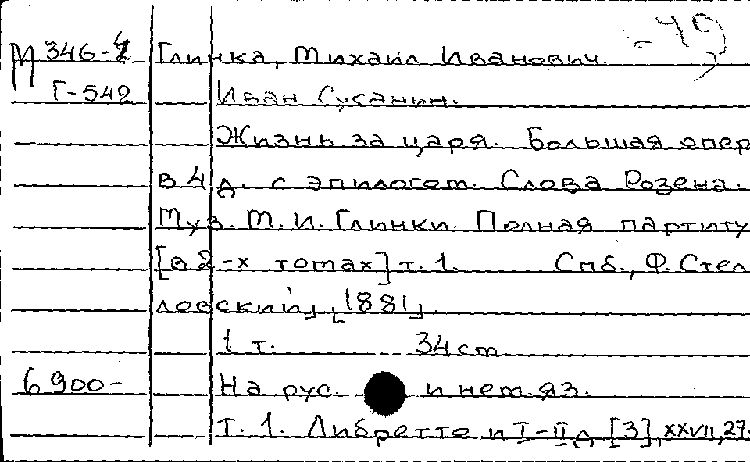 М 346-4 Глинка, Михаил Иванович -49
Г-542 Иван Сусанин.
Жизнь за царя. Большая опер
в 4 д. с эпилогом. Слова Розена.
Муз. М. И. Глинки. Полная партиту
[в 2-х томах] т. 1. Спб., Ф. Стел
ловский, [1881].
1 т. 34 cm
6900- На рус. и нем. яз.
Т. 1. Либретто и I-II д. [3], XXVII, 27.